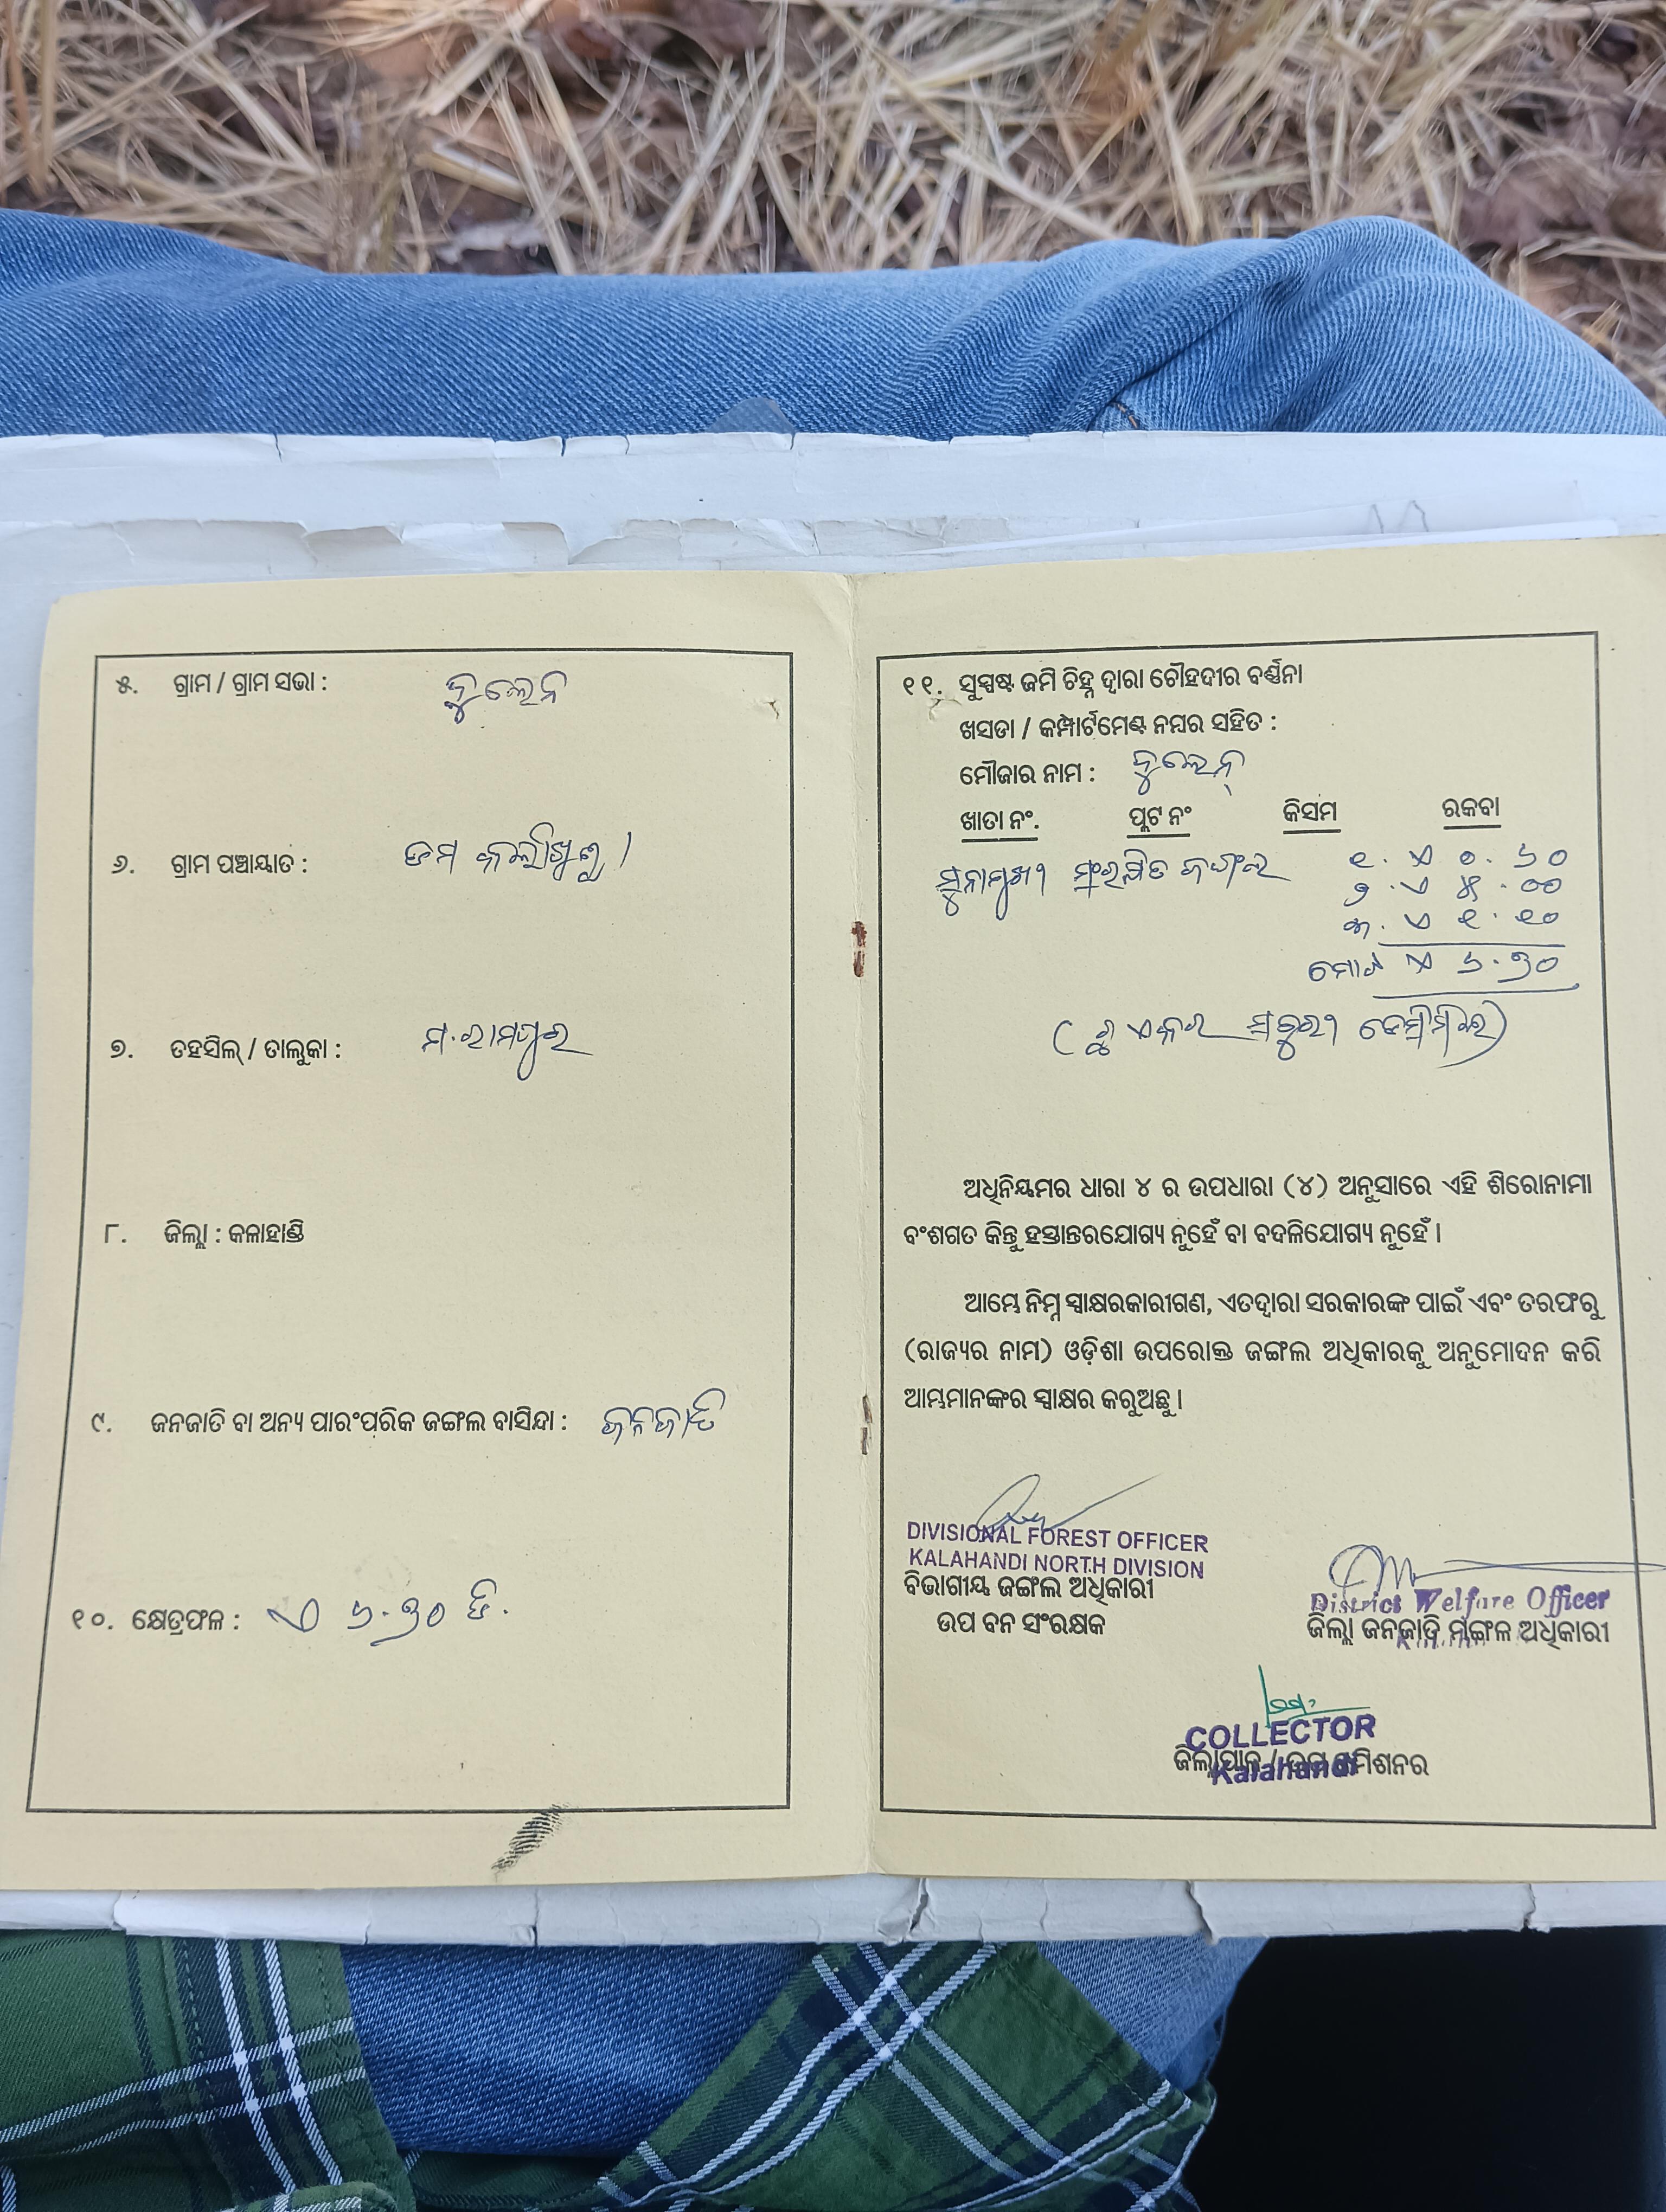 ୫. ଗ୍ରାମ / ଗ୍ରାମ ସଭା :
୬. ଗ୍ରାମ ପଞ୍ଚାୟାତ :
୭. ତହସିଲ୍ / ତାଲୁକା : ମ.ରାମପୁର
୮. ଜିଲ୍ଲା : କଳାହାଣ୍ଡି
୯. ଜନଜାତି ବା ଅନ୍ୟ ପାରଂପରିକ ଜଙ୍ଗଲ ବାସିନ୍ଦା : ଜନଜାତି
୧୦. କ୍ଷେତ୍ରଫଳ : ଏ ୬.୭୦ ଡି.
୧୧. ସୁସ୍ପଷ୍ଟ ଜମି ଚିହ୍ନ ଦ୍ୱାରା ଚୌହଦୀର ବର୍ଣ୍ଣନା
ଖସଡା / କମ୍ପାର୍ଟମେଣ୍ଟ ନମ୍ବର ସହିତ :
ମୌଜାର ନାମ :
ଖାତା ନଂ. ପ୍ଲଟ ନଂ କିସମ ରକବା
ସଂରକ୍ଷିତ ଜଙ୍ଗଲ ୧. ଏ ୦.୬୦
୨. ଏ ୫.୦୦
୩. ଏ ୧.୧୦
ମୋଟ ଏ ୬.୭୦
ଅଧିନିୟମର ଧାରା ୪ ର ଉପଧାରା (୪) ଅନୁସାରେ ଏହି ଶିରୋନାମା
ବଂଶଗତ କିନ୍ତୁ ହସ୍ତାନ୍ତରଯୋଗ୍ୟ ନୁହେଁ ବା ବଦଳିଯୋଗ୍ୟ ନୁହେଁ ।
ଆମ୍ଭେ ନିମ୍ନ ସ୍ୱାକ୍ଷରକାରୀଗଣ, ଏତଦ୍ୱାରା ସରକାରଙ୍କ ପାଇଁ ଏବଂ ତରଫରୁ
(ରାଜ୍ୟର ନାମ) ଓଡ଼ିଶା ଉପରୋକ୍ତ ଜଙ୍ଗଲ ଅଧିକାରକୁ ଅନୁମୋଦନ କରି
ଆମ୍ଭମାନଙ୍କର ସ୍ୱାକ୍ଷର କରୁଅଛୁ ।
DIVISIONAL FOREST OFFICER
KALAHANDI NORTH DIVISION
ବିଭାଗୀୟ ଜଙ୍ଗଲ ଅଧିକାରୀ
ଉପ ବନ ସଂରକ୍ଷକ
District Welfare Officer
ଜିଲ୍ଲା ଜନଜାତି ମଙ୍ଗଳ ଅଧିକାରୀ
COLLECTOR
Kalahandi
ଜିଲ୍ଲାପାଳ / ଉପ କମିଶନର